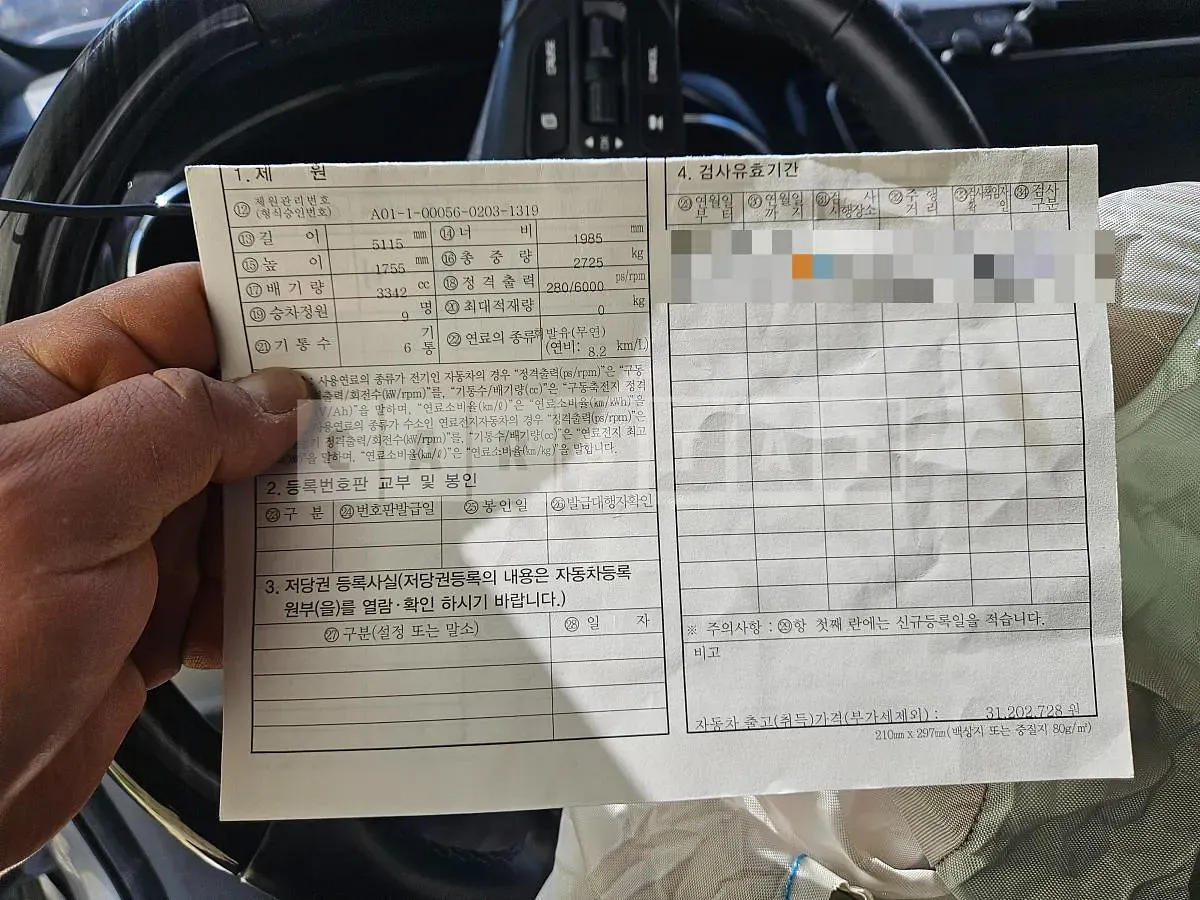 1. 제 원
⑫ 제원관리번호 (형식승인번호) A01-1-00056-0203-1319
⑬ 길 이 5115 mm ⑭ 너 비 1985 mm
⑮ 높 이 1755 mm ⑯ 총 중 량 2725 kg
⑰ 배 기 량 3342 cc ⑱ 정 격 출 력 280/6000 ps/rpm
⑲ 승차정원 9 명 ⑳ 최대적재량 0 kg
㉑ 기 통 수 6 기통 ㉒ 연료의 종류 휘발유(무연) (연비: 8.2 km/L)
사용연료의 종류가 전기인 자동차의 경우 "정격출력(ps/rpm)"은 "구동
출력/회전수(kW/rpm)"를, "기통수/배기량(cc)"은 "구동축전지 정격
V/Ah)"을 말하며, "연료소비율(km/ℓ)"은 "연료소비율(km/kWh)"을
사용연료의 종류가 수소인 연료전지자동차의 경우 "정격출력(ps/rpm)"은
기 정격출력/회전수(kW/rpm)"를, "기통수/배기량(cc)"은 "연료전지 최고
을 말하며, "연료소비율(km/ℓ)"은 "연료소비율(km/kg)"을 말합니다.
2. 등록번호판 교부 및 봉인
㉓ 구 분 ㉔ 번호판발급일 ㉕ 봉인일 ㉖ 발급대행자확인
3. 저당권 등록사실(저당권등록의 내용은 자동차등록
원부(을)를 열람·확인 하시기 바랍니다.)
㉗ 구분(설정 또는 말소) ㉘ 일 자
4. 검사유효기간
㉙ 연월일부터 ㉚ 연월일까지 ㉛ 검사시행장소 ㉜ 주행거리 ㉝ 검사책임자확인 ㉞ 검사구분
※ 주의사항 : ㉙항 첫째 란에는 신규등록일을 적습니다.
비고
자동차 출고(취득)가격(부가세제외) : 31,202,728 원
210㎜ x 297㎜(백상지 또는 중질지 80g/㎡)